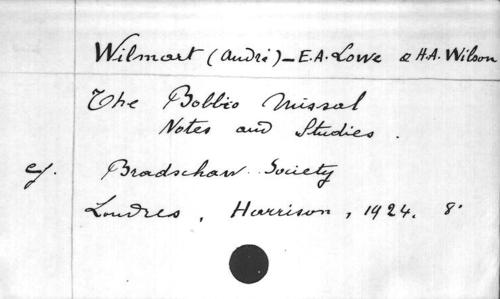 Wilmart (André) - E.A. Lowe & H.A. Wilson
The Bobbio Missal
Notes and Studies.
cf. Bradschaw Society
Londres, Harrison, 1924. 8°